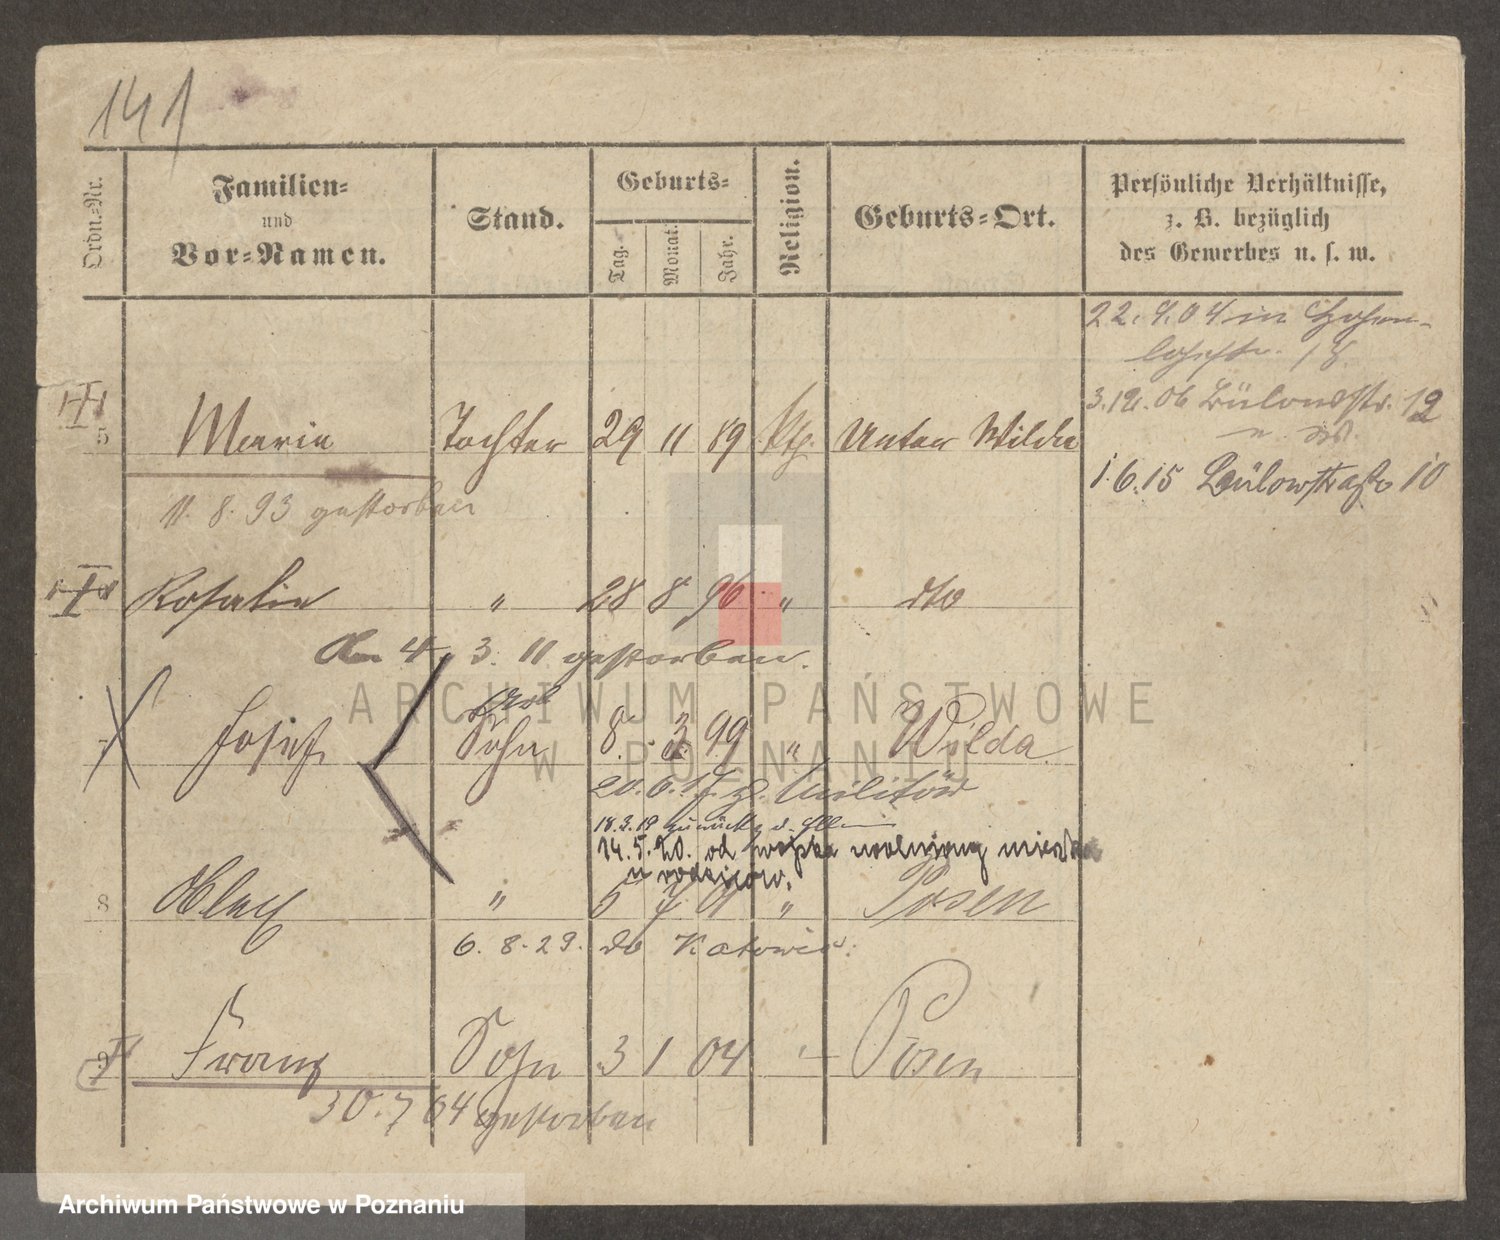 141
Ordn.-Nr.
Familien-
und
Vor-Namen.
Stand.
Geburts-
Tag.
Monat.
Jahr.
Religion.
Geburts-Ort.
Persönliche Verhältnisse,
z. B. bezüglich
des Gewerbes u. s. w.
22. 4. 04 in Hohen-
lohestr.
3. 12. 06 Bülowstr. 12
1. 6. 15 Bülowstraße 10
5 Maria Tochter 29 11 89 kth. Unter Wilda
11. 8. 93 gestorben
Rosalie " 28 8 96 " dto
Am 4. 3. 11 gestorben.
Josef Sohn 8. 3. 99 " Wilda
20. 6. 17. z. Militär
18. 3. 19 zurück v.
14. 5. 20. od wojska uwolniony mieszka
u rodziców.
8 " 5 7 01 " Posen
6. 8. 29. do Katowic.
9 Franz Sohn 3 1 04 " Posen
30. 7 04 gestorben
ARCHIWUM PAŃSTWOWE
W POZNANIU
Archiwum Państwowe w Poznaniu